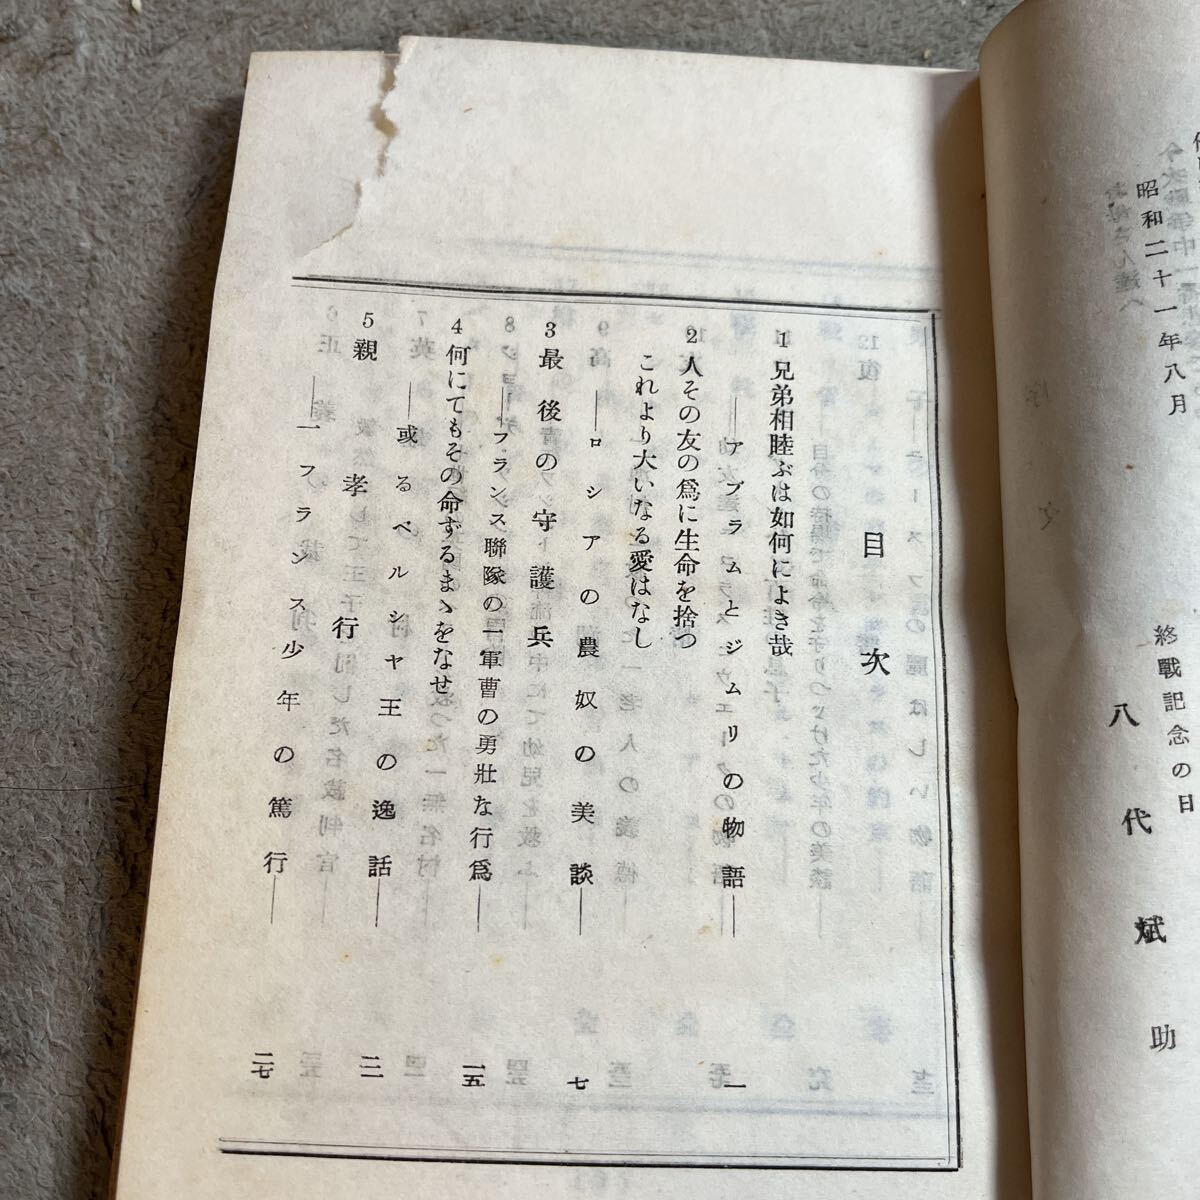 昭和二十一年八月
終戰記念の日
八代斌助
目次
1 兄弟相睦ぶは如何によき哉
――アブラムとジムリの物語―― 一
2 人その友の爲に生命を捨つ
これより大いなる愛はなし
――ロシアの農奴の美談―― 七
3 最後の守護兵
――フランス聯隊の一軍曹の勇壯な行爲―― 一五
4 何にてもその命ずるまゝをなせ
――或るペルシヤ王の逸話―― 二一
5 親孝行
――一フランス少年の篤行―― 二七